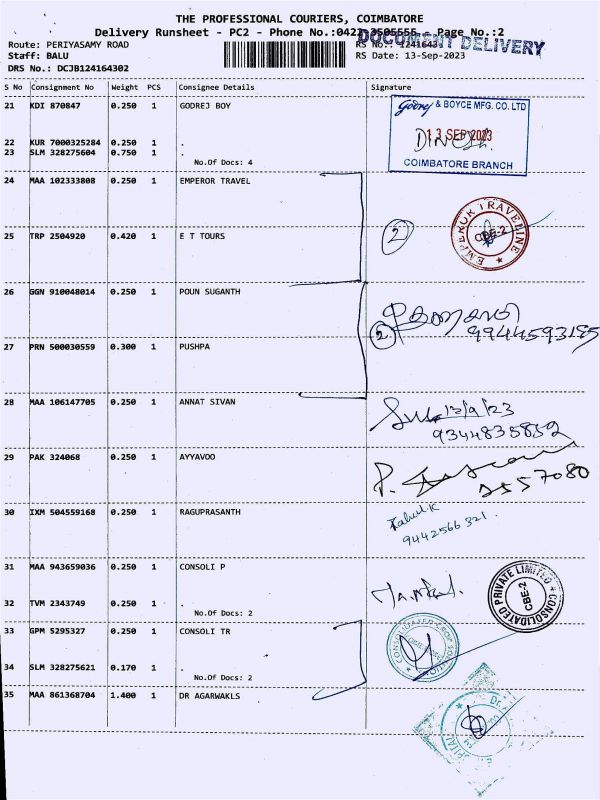 THE PROFESSIONAL COURIERS, COIMBATORE
Delivery Runsheet - PC2 - Phone No.:0422-3505555 - Page No.:2
DOCUMENT DELIVERY
Route: PERIYASAMY ROAD RS No.: 1241643
Staff: BALU RS Date: 13-Sep-2023
DRS No.: DCJB124164302
S No Consignment No Weight PCS Consignee Details Signature
21 KDI 870847 0.250 1 GODREJ BOY
Godrej & BOYCE MFG. CO. LTD
13 SEP 2023
COIMBATORE BRANCH
22 KUR 7000325284 0.250 1 .
23 SLM 328275604 0.750 1 .
No.Of Docs: 4
24 MAA 102333808 0.250 1 EMPEROR TRAVEL
EMPEROR TRAVELINE
CBE-2
2
25 TRP 2504920 0.420 1 E T TOURS
26 GGN 910048014 0.250 1 POUN SUGANTH
2
9944593195
27 PRN 500030559 0.300 1 PUSHPA
28 MAA 106147705 0.250 1 ANNAT SIVAN
12/9/23
9344835852
29 PAK 324068 0.250 1 AYYAVOO
2557080
30 IXM 504559168 0.250 1 RAGUPRASANTH
Rahul.K
9442566321.
31 MAA 943659036 0.250 1 CONSOLI P
CONSOLIDATED PRIVATE LIMITED
CBE-2
32 TVM 2343749 0.250 1 .
No.Of Docs: 2
33 GPM 5295327 0.250 1 CONSOLI TR
34 SLM 328275621 0.170 1 .
No.Of Docs: 2
35 MAA 861368704 1.400 1 DR AGARWAKLS
Dr.